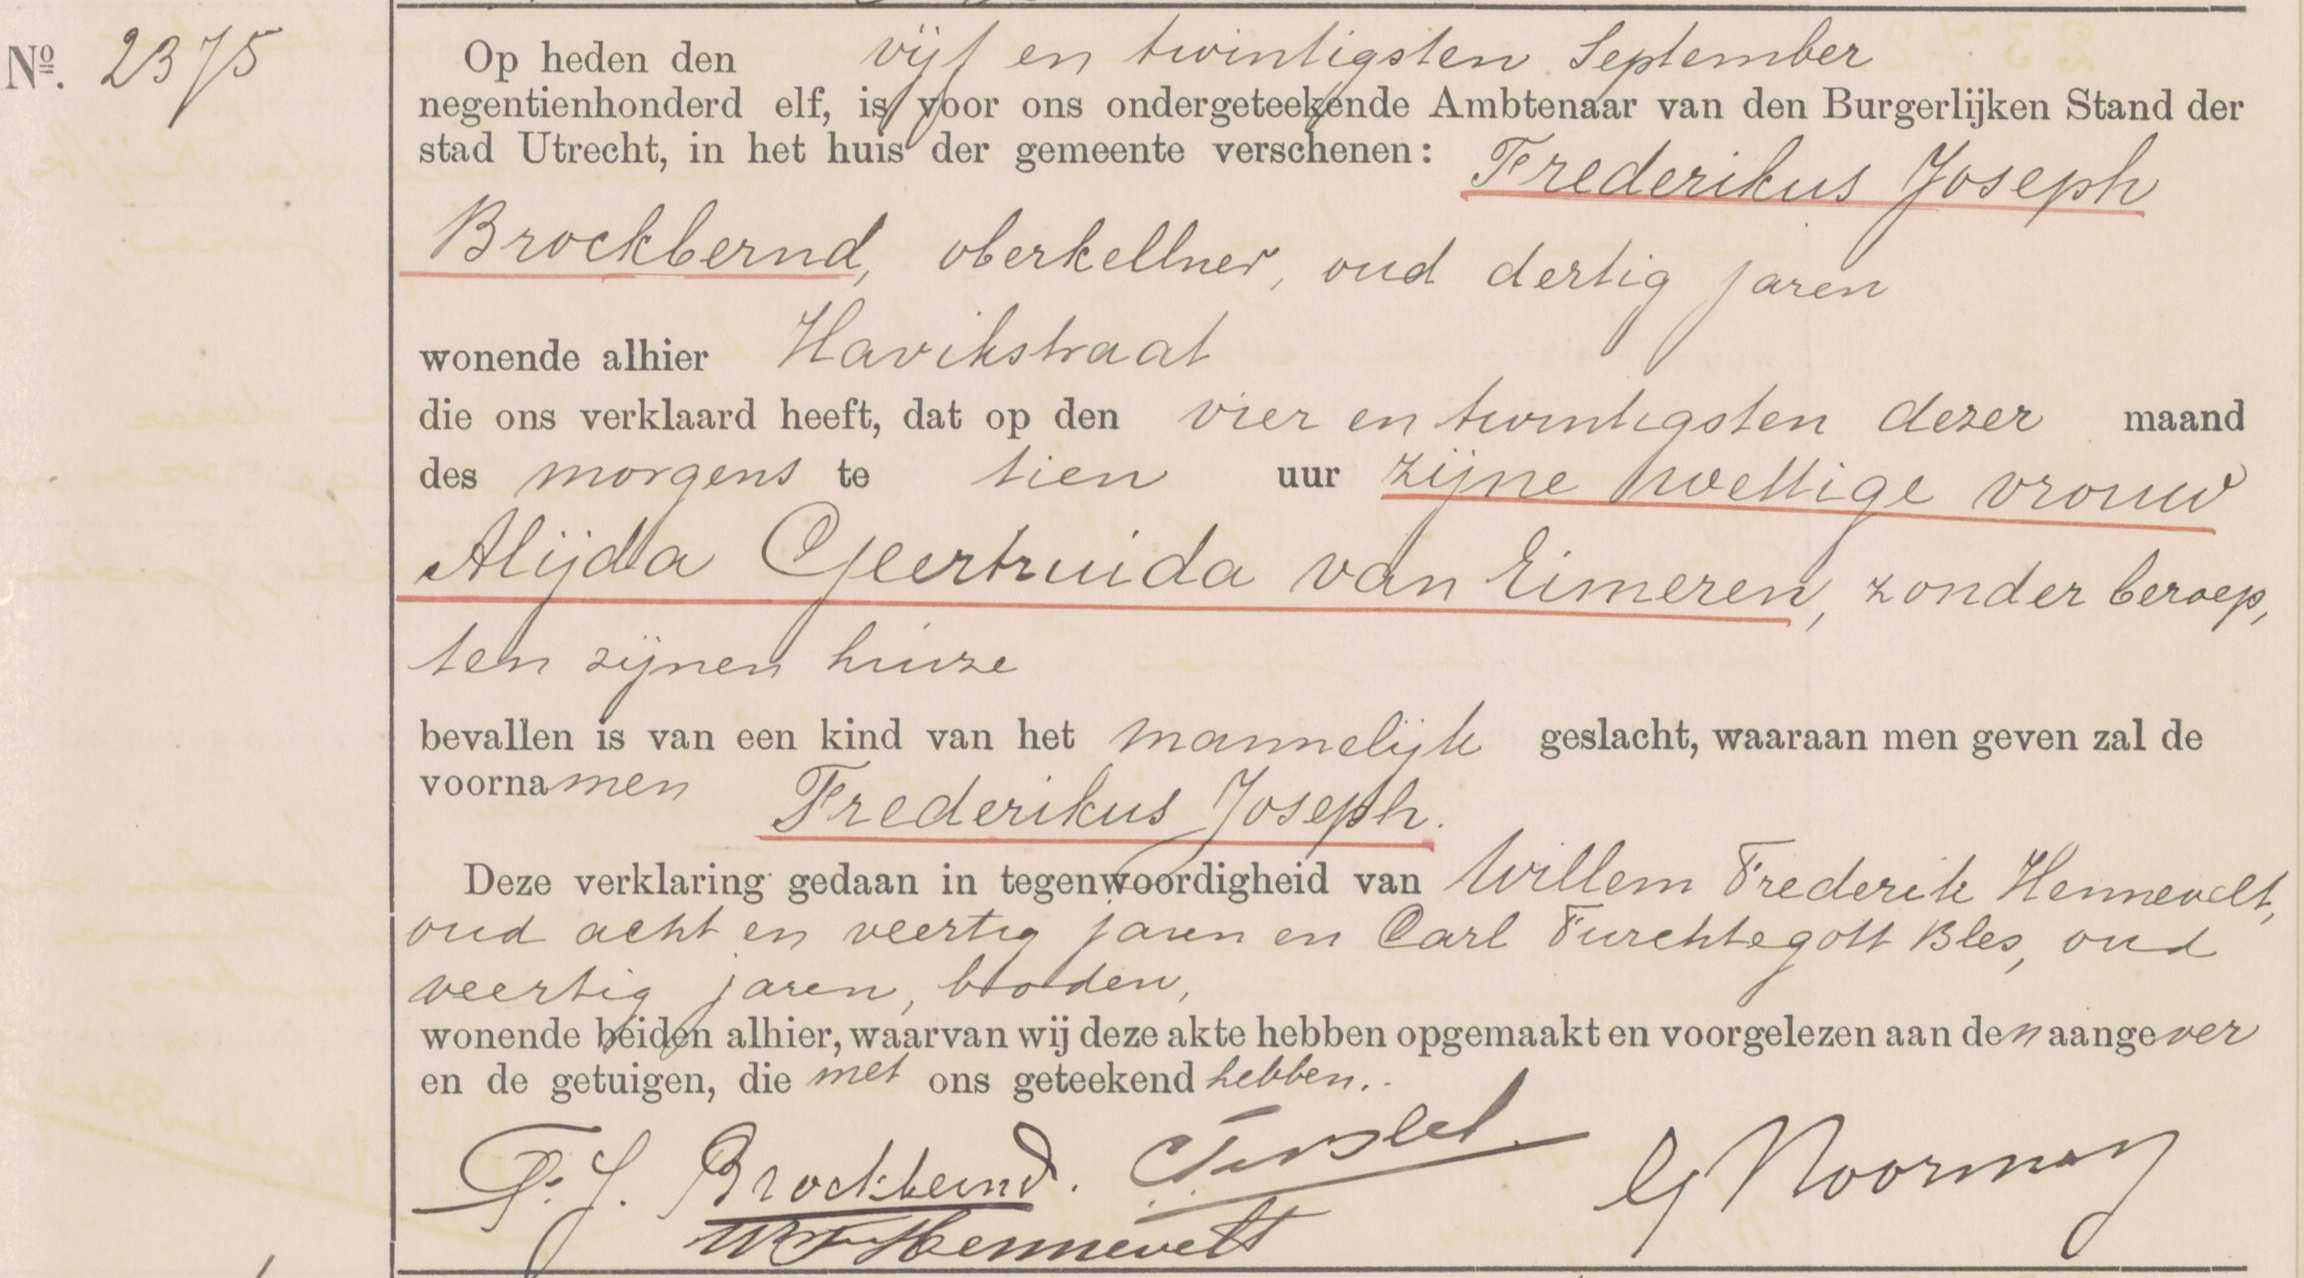 Nº. 2375
Op heden den vijf en twintigsten September
negentienhonderd elf, is voor ons ondergeteekende Ambtenaar van den Burgerlijken Stand der
stad Utrecht, in het huis der gemeente verschenen: Frederikus Joseph
Brockbernd, oberkellner, oud dertig jaren
wonende alhier Havikstraat
die ons verklaard heeft, dat op den vier en twintigsten dezer maand
des morgens te tien uur zijne wettige vrouw
Alijda Geertruida van Eimeren, zonder beroep,
ten zijnen huize
bevallen is van een kind van het mannelijk geslacht, waaraan men geven zal de
voornamen Frederikus Joseph.
Deze verklaring gedaan in tegenwoordigheid van Willem Frederik Hennevelt,
oud acht en veertig jaren en Carl Furchtegott Bles, oud
veertig jaren, boden,
wonende beiden alhier, waarvan wij deze akte hebben opgemaakt en voorgelezen aan den aangever
en de getuigen, die met ons geteekend hebben.
F. J. Brockbernd. G Noorman
WF Hennevelt